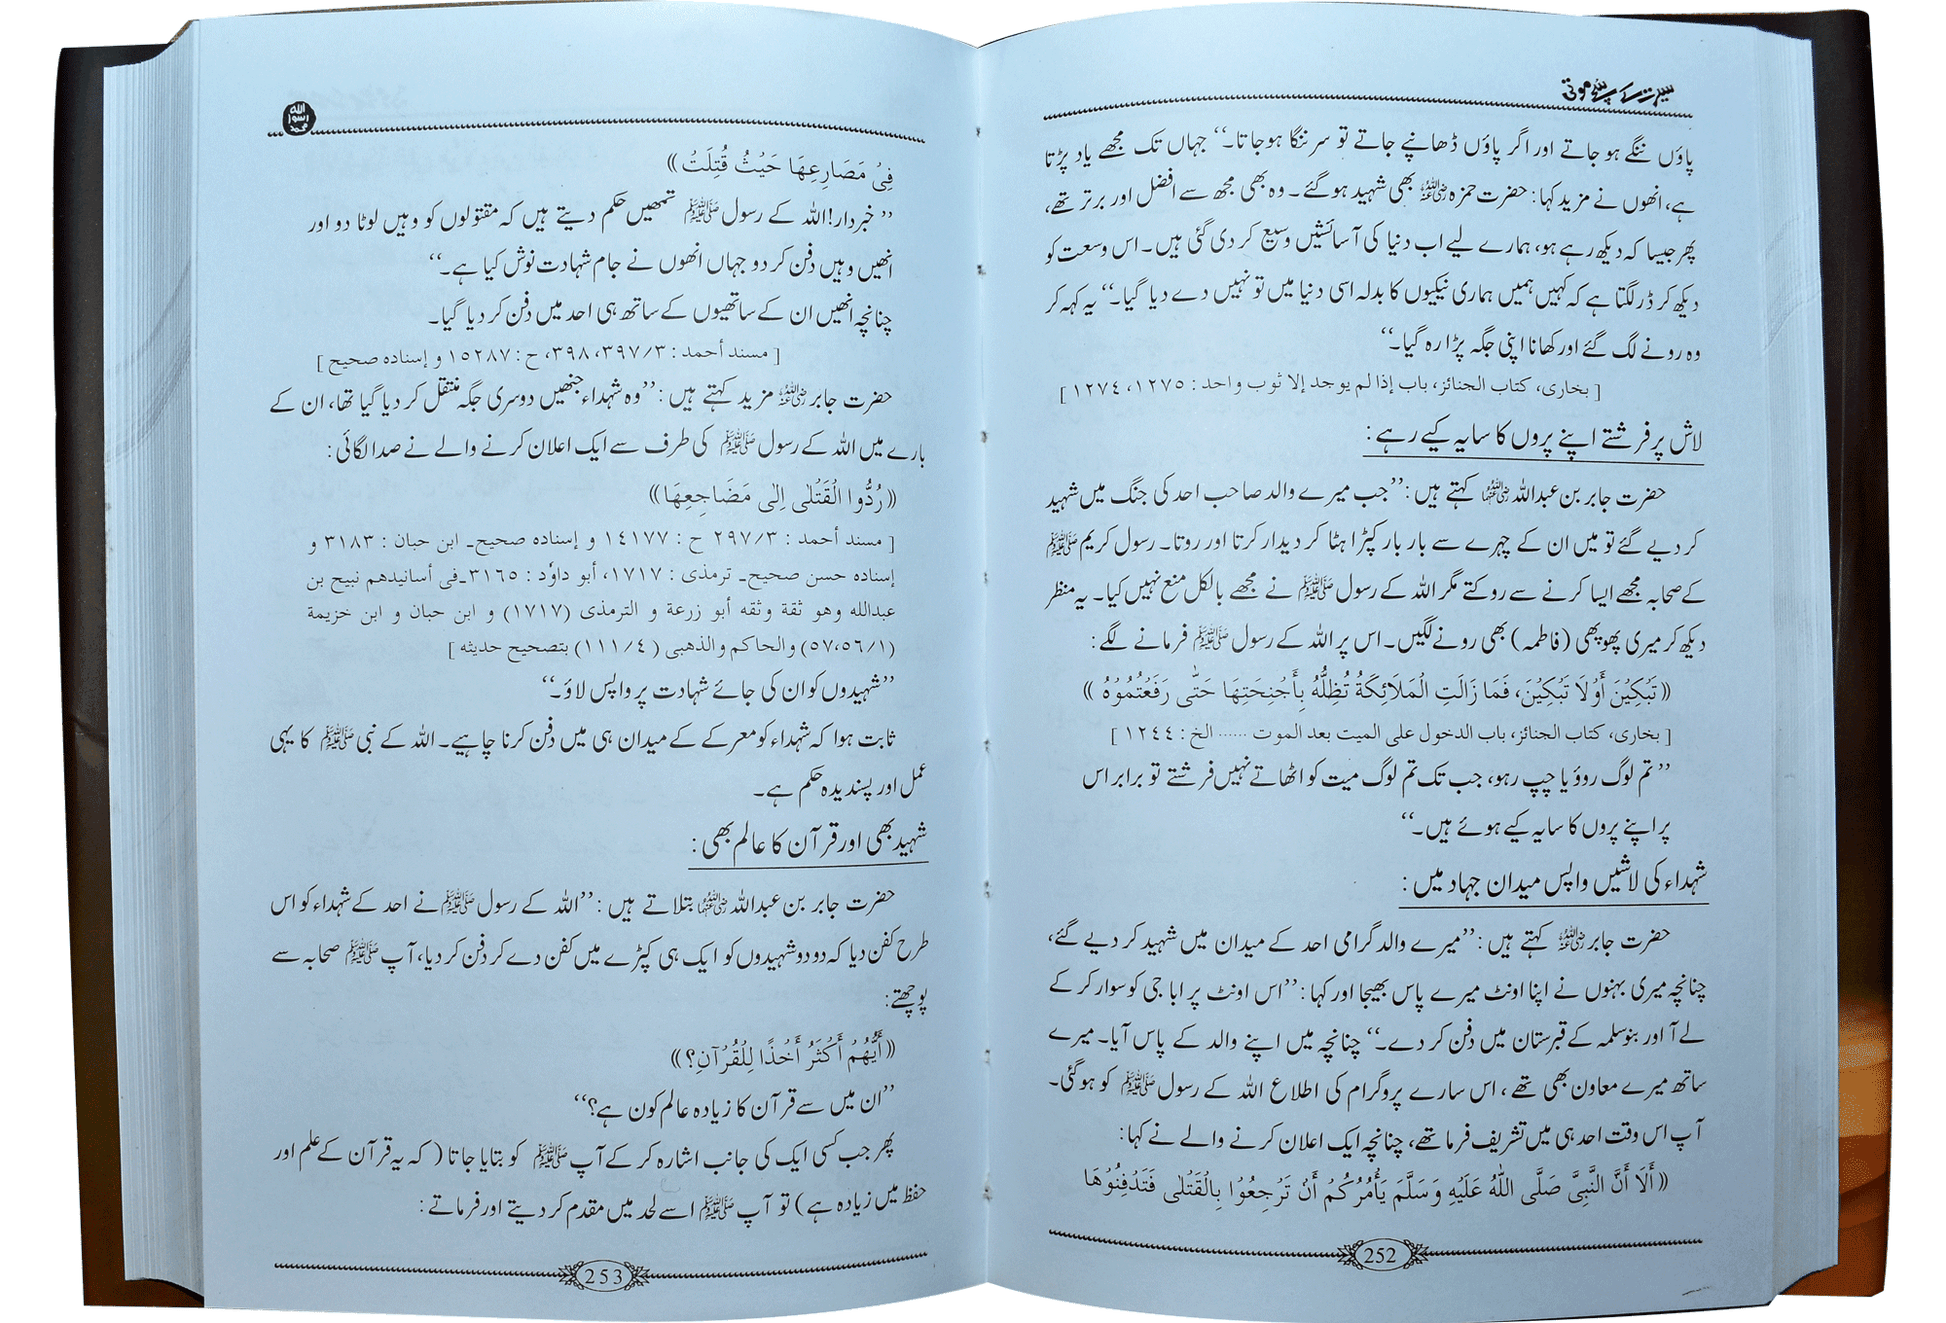 سیرت کے سچے موتی
پاؤں ننگے ہو جاتے اور اگر پاؤں ڈھانپے جاتے تو سر ننگا ہو جاتا۔‘‘ جہاں تک مجھے یاد پڑتا
ہے، انھوں نے مزید کہا: حضرت حمزہ رضی اللہ عنہ بھی شہید ہو گئے۔ وہ بھی مجھ سے افضل اور برتر تھے،
پھر جیسا کہ دیکھ رہے ہو، ہمارے لیے اب دنیا کی آسائشیں وسیع کر دی گئی ہیں۔ اس وسعت کو
دیکھ کر ڈر لگتا ہے کہ کہیں ہمیں ہماری نیکیوں کا بدلہ اسی دنیا میں تو نہیں دے دیا گیا۔‘‘ یہ کہہ کر
وہ رونے لگ گئے اور کھانا اپنی جگہ پڑا رہ گیا۔‘‘
[ بخاری، کتاب الجنائز، باب إذا لم یوجد إلا ثوب واحد : ١٢٧٥، ١٢٧٤ ]
لاش پر فرشتے اپنے پروں کا سایہ کیے رہے:
حضرت جابر بن عبداللہ رضی اللہ عنہما کہتے ہیں: ’’جب میرے والد صاحب احد کی جنگ میں شہید
کر دیے گئے تو میں ان کے چہرے سے بار بار کپڑا ہٹا کر دیدار کرتا اور روتا۔ رسول کریم ﷺ
کے صحابہ مجھے ایسا کرنے سے روکتے مگر اللہ کے رسول ﷺ نے مجھے بالکل منع نہیں کیا۔ یہ منظر
دیکھ کر میری پھوپھی (فاطمہ) بھی رونے لگیں۔ اس پر اللہ کے رسول ﷺ فرمانے لگے:
(( تَبْكِيْنَ أَوْ لَا تَبْكِيْنَ، فَمَا زَالَتِ الْمَلَائِكَةُ تُظِلُّهُ بِأَجْنِحَتِهَا حَتّٰى رَفَعْتُمُوْهُ ))
[ بخاری، کتاب الجنائز، باب الدخول علی المیت بعد الموت ...... الخ : ١٢٤٤ ]
’’تم لوگ روؤ یا چپ رہو، جب تک تم لوگ میت کو اٹھاتے نہیں فرشتے تو برابر اس
پر اپنے پروں کا سایہ کیے ہوئے ہیں۔‘‘
شہداء کی لاشیں واپس میدان جہاد میں:
حضرت جابر رضی اللہ عنہ کہتے ہیں: ’’میرے والد گرامی احد کے میدان میں شہید کر دیے گئے،
چنانچہ میری بہنوں نے اپنا اونٹ میرے پاس بھیجا اور کہا: ’’اس اونٹ پر ابا جی کو سوار کر کے
لے آ اور بنو سلمہ کے قبرستان میں دفن کر دے۔‘‘ چنانچہ میں اپنے والد کے پاس آیا۔ میرے
ساتھ میرے معاون بھی تھے، اس سارے پروگرام کی اطلاع اللہ کے رسول ﷺ کو ہو گئی۔
آپ اس وقت احد ہی میں تشریف فرما تھے، چنانچہ ایک اعلان کرنے والے نے کہا:
(( أَلَا أَنَّ النَّبِيَّ صَلَّى اللّٰهُ عَلَيْهِ وَسَلَّمَ يَأْمُرُكُمْ أَنْ تَرْجِعُوْا بِالْقَتْلٰى فَتَدْفِنُوْهَا
252
اللہ رسول محمد
فِيْ مَصَارِعِهَا حَيْثُ قُتِلَتْ ))
’’خبردار! اللہ کے رسول ﷺ تمھیں حکم دیتے ہیں کہ مقتولوں کو وہیں لوٹا دو اور
انھیں وہیں دفن کر دو جہاں انھوں نے جام شہادت نوش کیا ہے۔‘‘
چنانچہ انھیں ان کے ساتھیوں کے ساتھ ہی احد میں دفن کر دیا گیا۔
[ مسند أحمد : ٣٩٧/٣، ٣٩٨، ح : ١٥٢٨٧ و إسنادہ صحیح ]
حضرت جابر رضی اللہ عنہ مزید کہتے ہیں: ’’وہ شہداء جنھیں دوسری جگہ منتقل کر دیا گیا تھا، ان کے
بارے میں اللہ کے رسول ﷺ کی طرف سے ایک اعلان کرنے والے نے صدا لگائی:
(( رُدُّوا الْقَتْلٰى اِلٰى مَضَاجِعِهَا ))
[ مسند أحمد : ٢٩٧/٣ ح : ١٤١٧٧ و إسنادہ صحیح۔ ابن حبان : ٣١٨٣ و
إسنادہ حسن صحیح۔ ترمذی : ١٧١٧، أبو داوٗد : ٣١٦٥۔ فی أسانیدھم نبیح بن
عبداللہ وھو ثقة وثقه أبو زرعة و الترمذی (١٧١٧) و ابن حبان و ابن خزیمة
(٥٧،٥٦/١) والحاکم والذھبی (١١١/٤) بتصحیح حدیثه ]
’’شہیدوں کو ان کی جائے شہادت پر واپس لاؤ۔‘‘
ثابت ہوا کہ شہداء کو معرکے کے میدان ہی میں دفن کرنا چاہیے۔ اللہ کے نبی ﷺ کا یہی
عمل اور پسندیدہ حکم ہے۔
شہید بھی اور قرآن کا عالم بھی:
حضرت جابر بن عبداللہ رضی اللہ عنہما بتلاتے ہیں: ’’اللہ کے رسول ﷺ نے احد کے شہداء کو اس
طرح کفن دیا کہ دو دو شہیدوں کو ایک ہی کپڑے میں کفن دے کر دفن کر دیا، آپ ﷺ صحابہ سے
پوچھتے:
(( أَيُّهُمْ أَكْثَرُ أَخْذًا لِلْقُرْآنِ؟ ))
’’ان میں سے قرآن کا زیادہ عالم کون ہے؟‘‘
پھر جب کسی ایک کی جانب اشارہ کر کے آپ ﷺ کو بتایا جاتا (کہ یہ قرآن کے علم اور
حفظ میں زیادہ ہے) تو آپ ﷺ اسے لحد میں مقدم کر دیتے اور فرماتے:
253